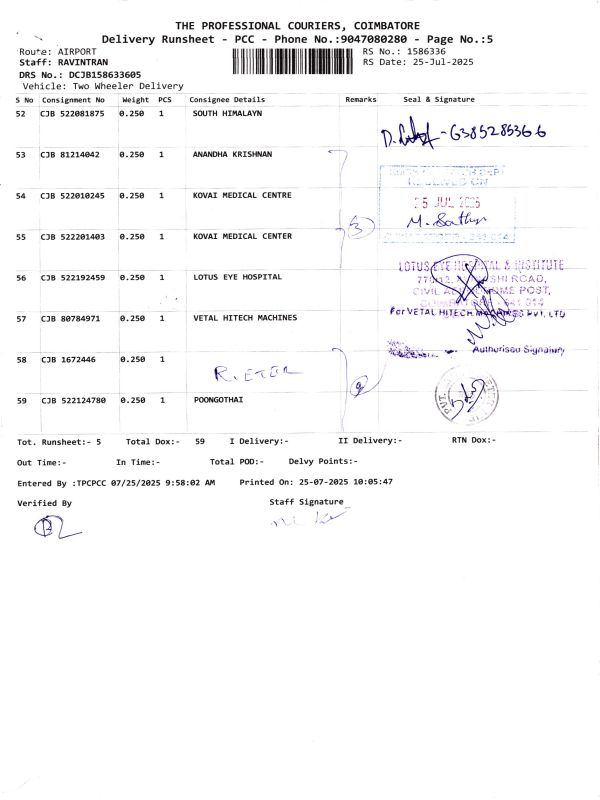 THE PROFESSIONAL COURIERS, COIMBATORE
Delivery Runsheet - PCC - Phone No.:9047080280 - Page No.:5
Route: AIRPORT RS No.: 1586336
Staff: RAVINTRAN RS Date: 25-Jul-2025
DRS No.: DCJB158633605
Vehicle: Two Wheeler Delivery
S No Consignment No Weight PCS Consignee Details Remarks Seal & Signature
52 CJB 522081875 0.250 1 SOUTH HIMALAYN
6385285366
53 CJB 81214042 0.250 1 ANANDHA KRISHNAN
RECEIVED ON
54 CJB 522010245 0.250 1 KOVAI MEDICAL CENTRE 25 JUL 2025
3
55 CJB 522201403 0.250 1 KOVAI MEDICAL CENTER
LOTUS EYE HOSPITAL & INSTITUTE
56 CJB 522192459 0.250 1 LOTUS EYE HOSPITAL
57 CJB 80784971 0.250 1 VETAL HITECH MACHINES For VETAL HITECH MACHINES PVT. LTD
Authorised Signatory
58 CJB 1672446 0.250 1
59 CJB 522124780 0.250 1 POONGOTHAI
Tot. Runsheet:- 5 Total Dox:- 59 I Delivery:- II Delivery:- RTN Dox:-
Out Time:- In Time:- Total POD:- Delvy Points:-
Entered By :TPCPCC 07/25/2025 9:58:02 AM Printed On: 25-07-2025 10:05:47
Verified By Staff Signature